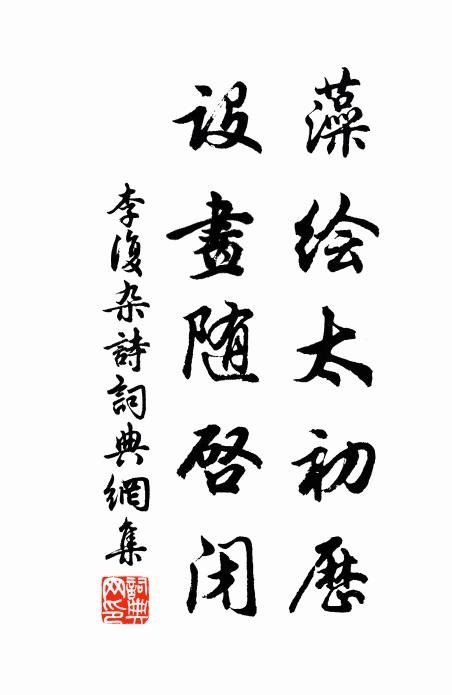 藻绘太初歷
設畫随啓闭
李復杂詩詞典網集
詞典网印